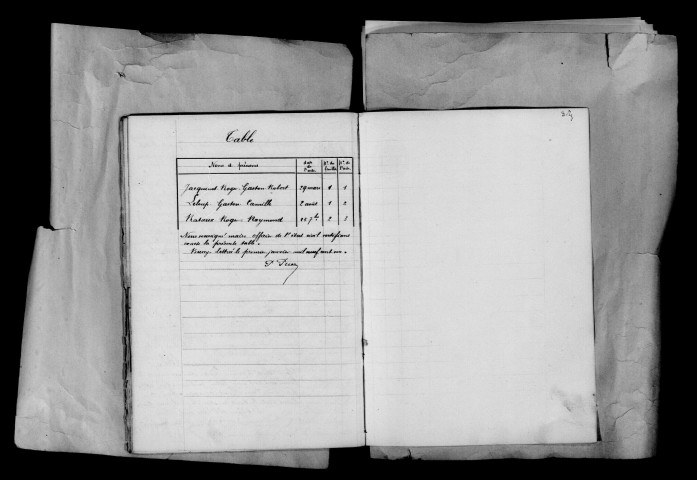 Table
Noms et prénoms | date de l'acte | N° de feuille | N° de l'acte
Jacquinet Roger Gaston Robert | 29 mars | 1 | 1
Leloup Gaston Camille | 2 août | 1 | 2
Roger Raymond | 7bre | 2 | 3
Nous soussigné maire officier de l'état civil certifions
exacte la présente table.
clôturé le premier janvier mil neuf cent